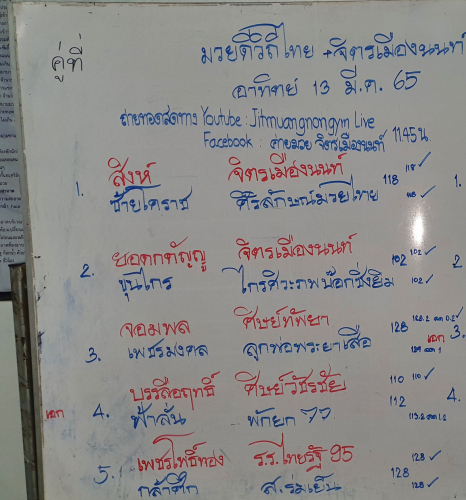 คู่ที่
มวยดีวิถีไทย + จิตรเมืองนนท์
อาทิตย์ 13 มี.ค. 65
ถ่ายทอดสดทาง Youtube : Jitmuangnongym Live
Facebook : ค่ายมวย จิตรเมืองนนท์ 11.45 น.
1. สิงห์ จิตรเมืองนนท์ 118 118 ✓ 1.
ซ้ายโคราช ศิริลักษณ์มวยไทย 118 ✓
2. ยอดกตัญญู จิตรเมืองนนท์ 102 102 ✓ 2
ขุนไกร ไกรศิวะภพน๊อกซิ่งยิม 102 ✓
จอมพล ศิษย์ทัพยา 128 3.
3. เพชรมงคล ลูกพ่อพระยาเสือ
บรรลือฤทธิ์ ศิษย์วัชรชัย 110 110 ✓
4. ฟ้าลั่น พักยก 77 112
5. เพชรโพธิ์ทอง ร.ร.ไทยรัฐ 95 128 ✓
กล้าศึก ส.ร่มเย็น 128 128 ✓